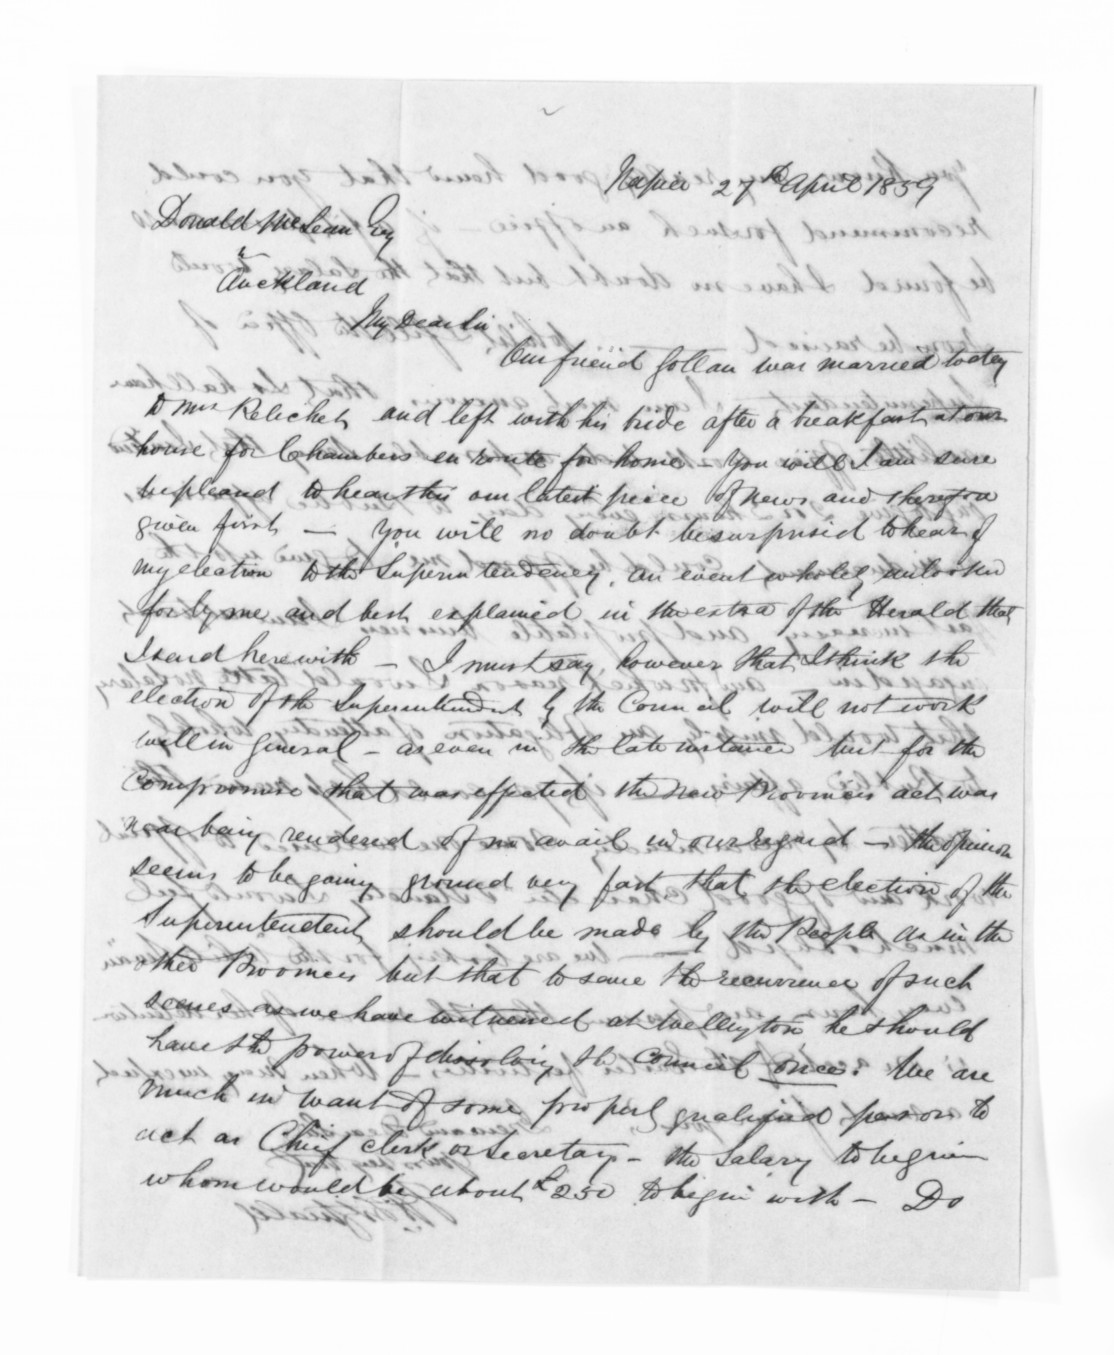 Napier 27th April 1859
Donald McLean Esq
Auckland
My Dear Sir
Our friend Gollan was married today
to Mrs and left with his bride after a breakfast at our
house for Chambers en route for home - You will I am sure
be pleased to hear this our latest piece of news and therefore
given first - You will no doubt be surprised to hear of
my election to the Superintendency, an event wholely unlooked
for by me and best explained in the extra of the Herald that
I send herewith - I must say, however that I think the
election of the Superintendent by the Council will not work
well in general - as even in the late instance but for the
compromise that was effected the New Provinces act was
near being rendered of no avail in our regard - the opinion
seems to be gaing ground very fast that the election of the
Superintendent should be made by the People as in the
other Provinces but that to save the recurrence of such
scenes as we have witnessed at Wellington he should
have the power of dissolving the Council once. We are
much in want of some properly qualified person to
act as Chief clerk or Secretary - the Salary to begin
whom would be about £250 to begin with - Do